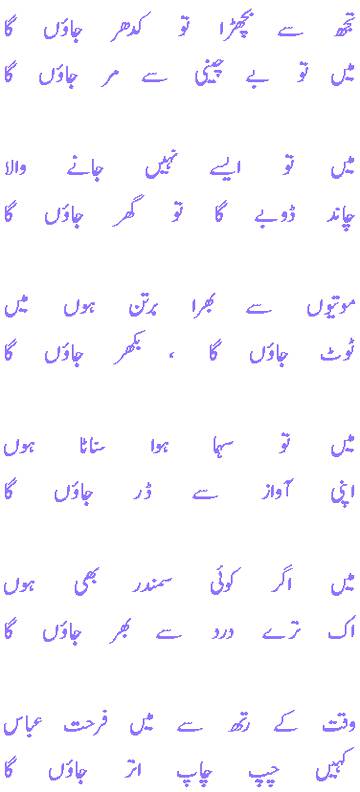 تجھ سے بچھڑا تو کدھر جاؤں گا
میں تو بے چینی سے مر جاؤں گا
میں تو ایسے نہیں جانے والا
چاند ڈوبے گا تو گھر جاؤں گا
موتیوں سے بھرا برتن ہوں میں
ٹوٹ جاؤں گا ، بکھر جاؤں گا
میں تو سہما ہوا سناٹا ہوں
اپنی آواز سے ڈر جاؤں گا
میں اگر کوئی سمندر بھی ہوں
اک ترے درد سے بھر جاؤں گا
وقت کے رتھ سے میں فرحت عباس
کہیں چپ چاپ اتر جاؤں گا